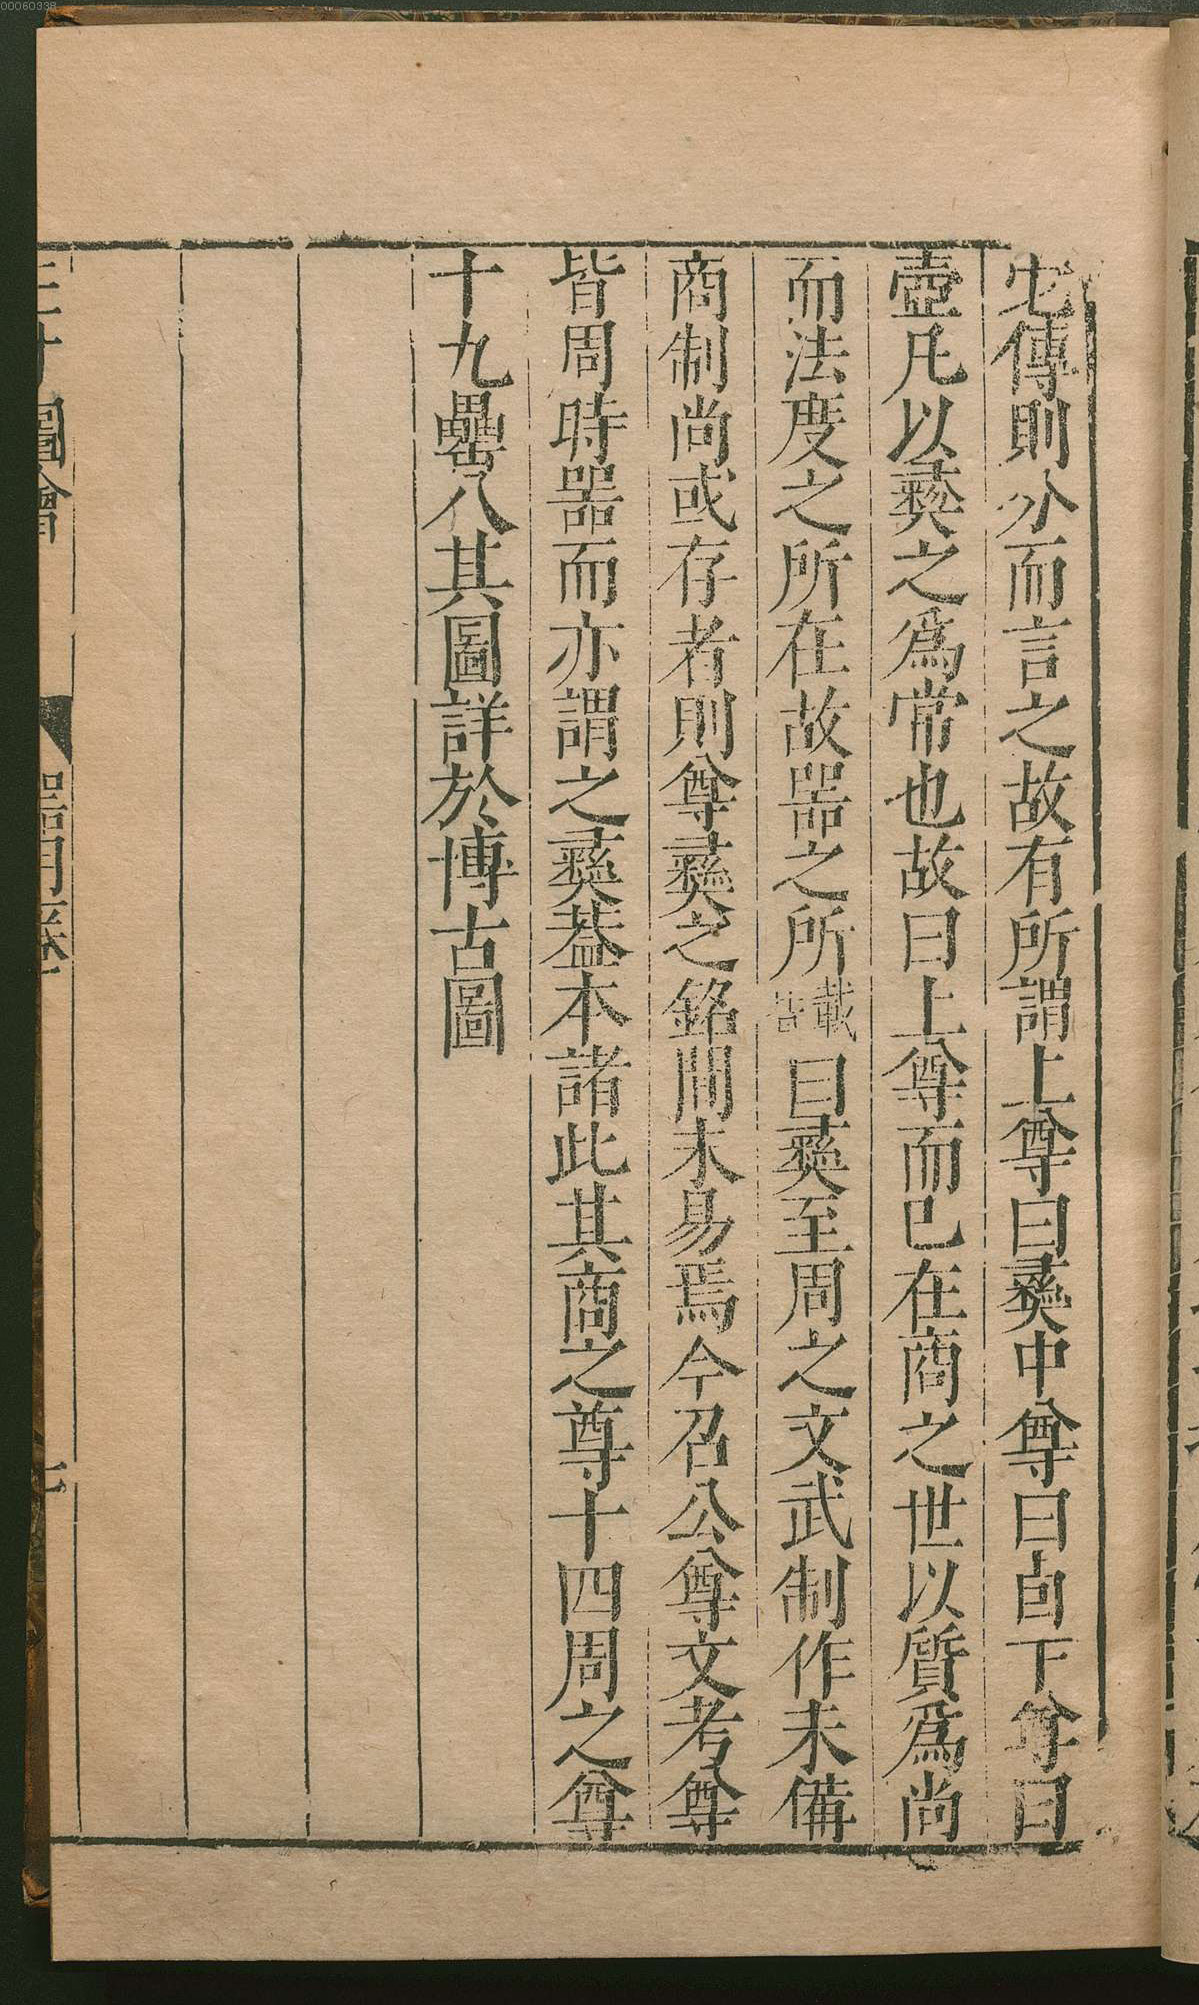 宅傳則分而言之故有所謂上尊曰彞中尊曰卣下尊曰
壺凡以彞之爲常也故曰上尊而已在商之世以質爲尚
而法度之所在故器之所載皆曰彞至周之文武制作未備
商制尚或存者則尊彞之銘間未易焉今召公尊文考尊
皆周時器而亦謂之彞葢本諸此其商之尊十四周之尊
十九罍八其圖詳於博古圖
三才圖會
器用一卷
00060338